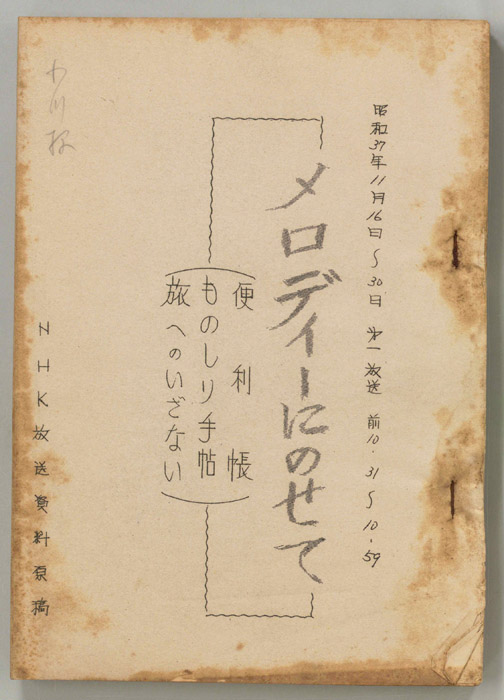 昭和37年11月16日〜30日 第一放送 前10.31〜10.59
メロディーにのせて
便利帳
ものしり手帖
旅へのいざない
NHK放送資料原稿